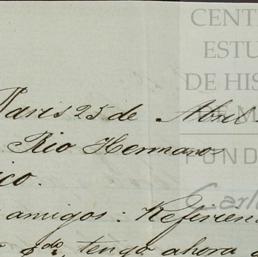 CENT
ESTU
DE HIS
FOND
Paris 25 de Abril
Rio Hermanos
ico.
amigos: Referien
do, tengo ahora